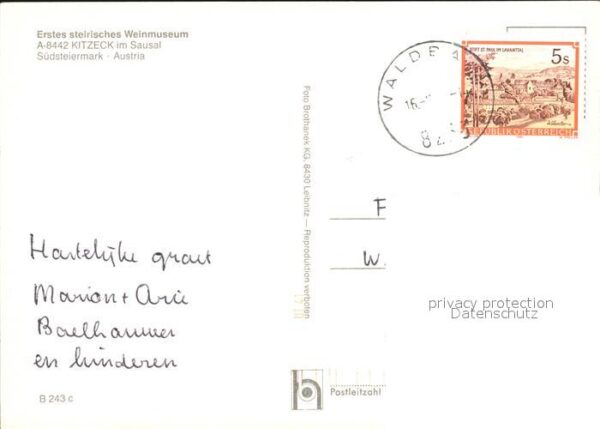 Erstes steirisches Weinmuseum
A-8442 KITZECK im Sausal
Südsteiermark · Austria
STIFT ST. PAUL IM LAVANTTAL
5s
REPUBLIK ÖSTERREICH
WALDB
16.
82
Foto Brothanek KG, 8430 Leibnitz — Reproduktion verboten
F
W.
Hartelijke groet
Marion + Arie
en kinderen
privacy protection
Datenschutz
Postleitzahl
B 243 c